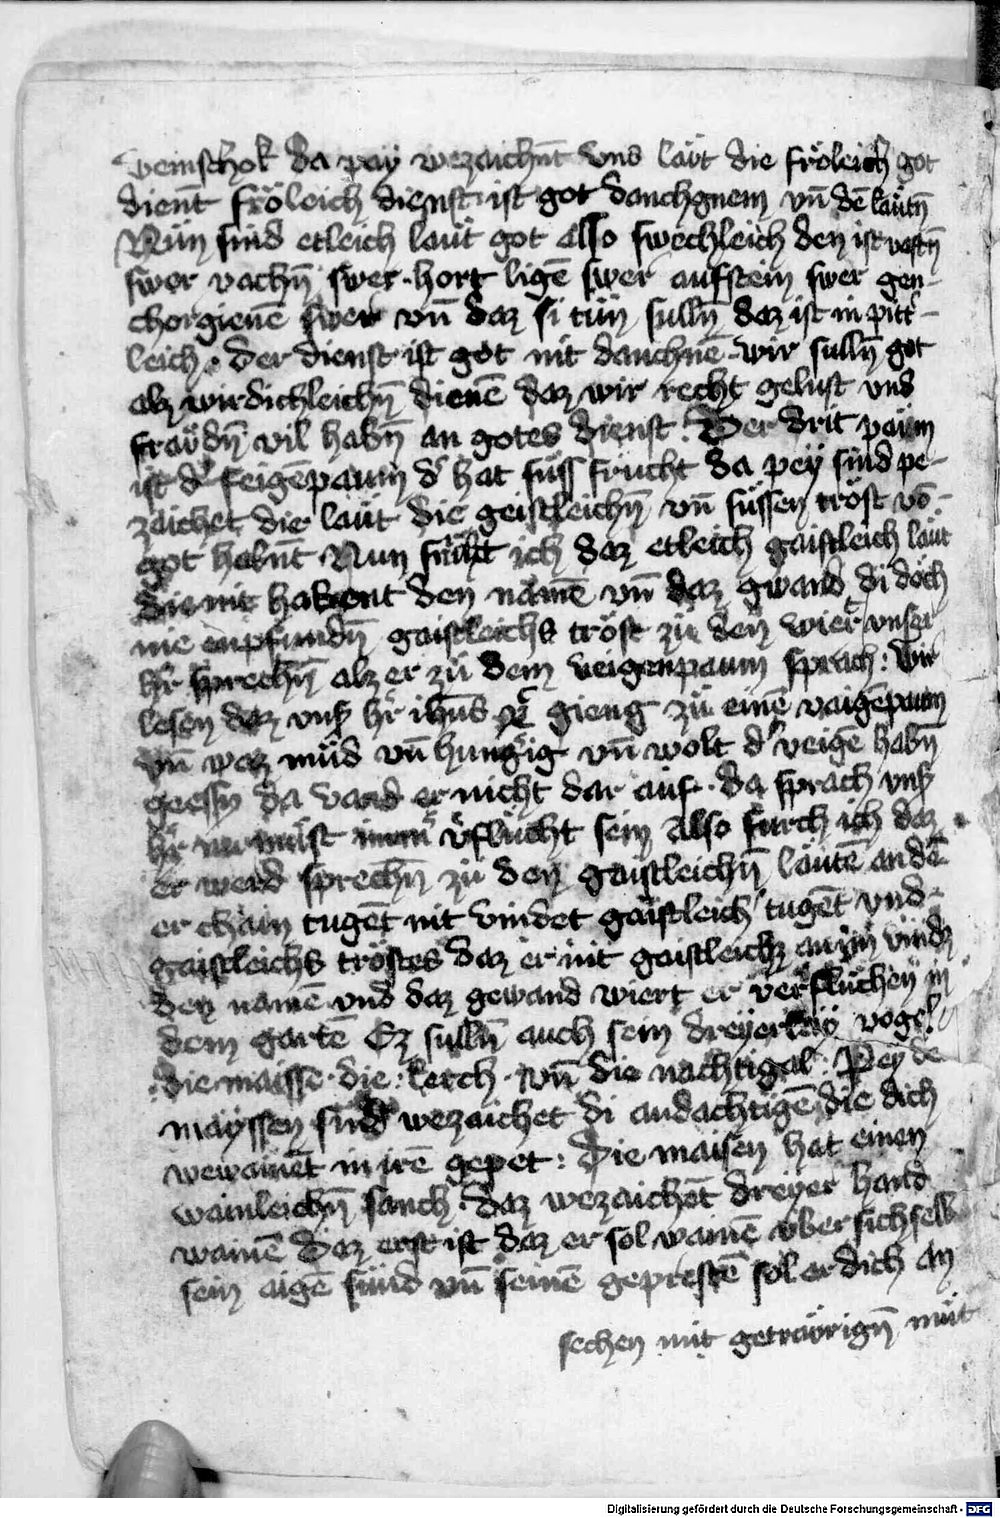 weinschok da pay wezaichnt̄ vns läut die fröleich got
dient̄ fröleich dienst ist got danchgnem vn̄ dē läutn̄
Nun sind etleich läut got also swechleich den ist vastn̄
swer vachn̄ swer · hort ligē swer aufstein swer gen-
chorgienē swer vn̄ daz si tün sulln̄ daz ist in pitt͛-
leich · Der dienst ist got nit danchnē · wir sulln̄ got
alz wirdichleichn̄ dienē daz wir recht gelust vnd
fräwdn̄ vil habn̄ an gotes dienst · Der drit paum
ist d͛ feigēpaum d͛ hat süss frucht da pey sind pe-
zaichet die läut die geistleichn̄ vn̄ süssen tröst vō-
got habnt · Nun fürcht ich daz etleich gaistleich läut
die nit habent den namē vn̄ daz gwand di doch
nie enpfundn̄ gaistleichs tröst zu den wiert vnser
hr̄ sprechn̄ alz er zu dem veigenpaum sprach : Wir
lesen daz vnß hr̄ ihūs gieng zu einē vaigēpaum
vn̄ waz müd vn̄ hungrig vn̄ wolt d͛ veigē habn̄
geessn da vand er nicht dar auf · da sprach vnß
hr̄ nu müst im̄m͛ v͛flucht sein Also fürch ich daz
er werd sprechn̄ zu den gaistleichn̄ läutē an dē
er chain tugēt nit vindet gaistleich tugēt vnd-
gaistleichs tröstes daz er nit gaistleichz an im vindz
den namē vnd daz gewand wiert er verfluchen in
dem gartē Ez sulln̄ auch sein dreyerlay vogel
die maissē · die · lerch · vn̄ die nachtigal : Pey de
mayssen sind wezaichet di andachtigē die dich
wewainēt in irē gepet : Die maisen hat einen
wainleichn̄ sanch · daz wezaichēt dreyer hand
wainē Daz erst ist daz er sol wainē vber sich selb
sein aigē sünd vn̄ seinē geprestē sol er dich an
sechen mit geträwrign̄ müt
Digitalisierung gefördert durch die Deutsche Forschungsgemeinschaft - DFG